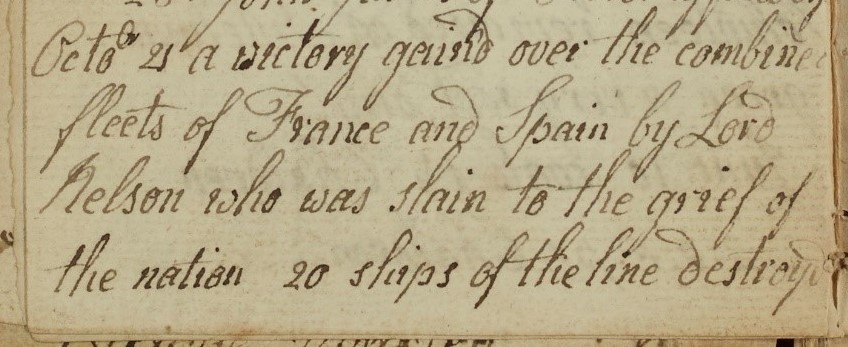 Octo 21 a victory gain'd over the combined
fleets of France and Spain by Lord
Nelson who was slain to the grief of
the nation 20 ships of the line destroy'd